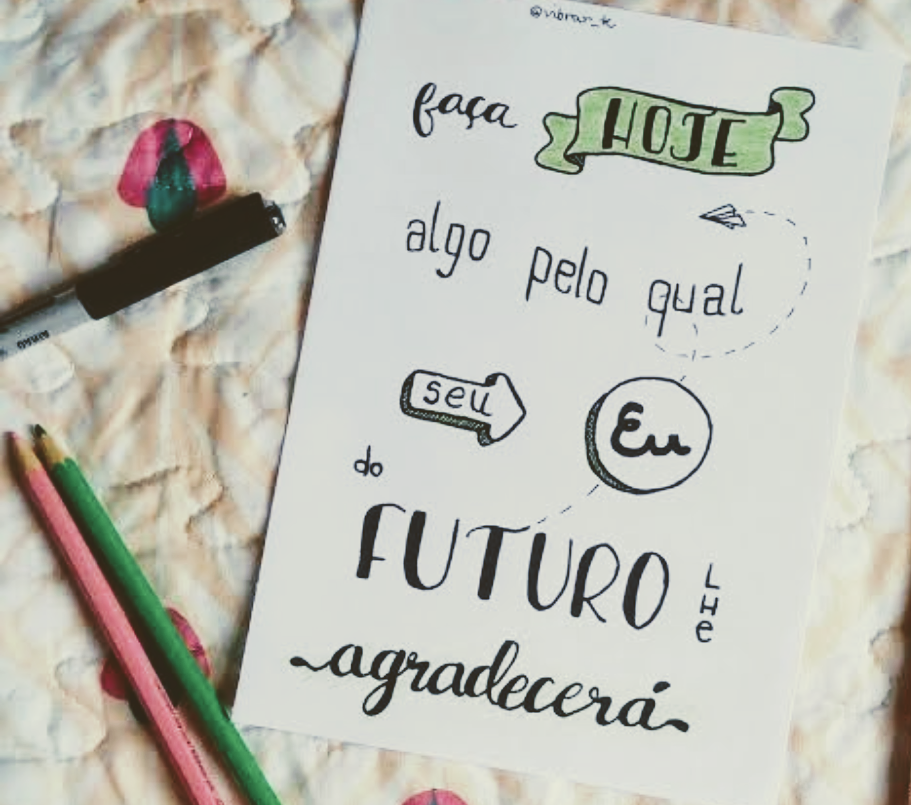 @vibrar_te
faça HOJE
algo pelo qual
seu Eu
do
FUTURO LHe
agradecerá